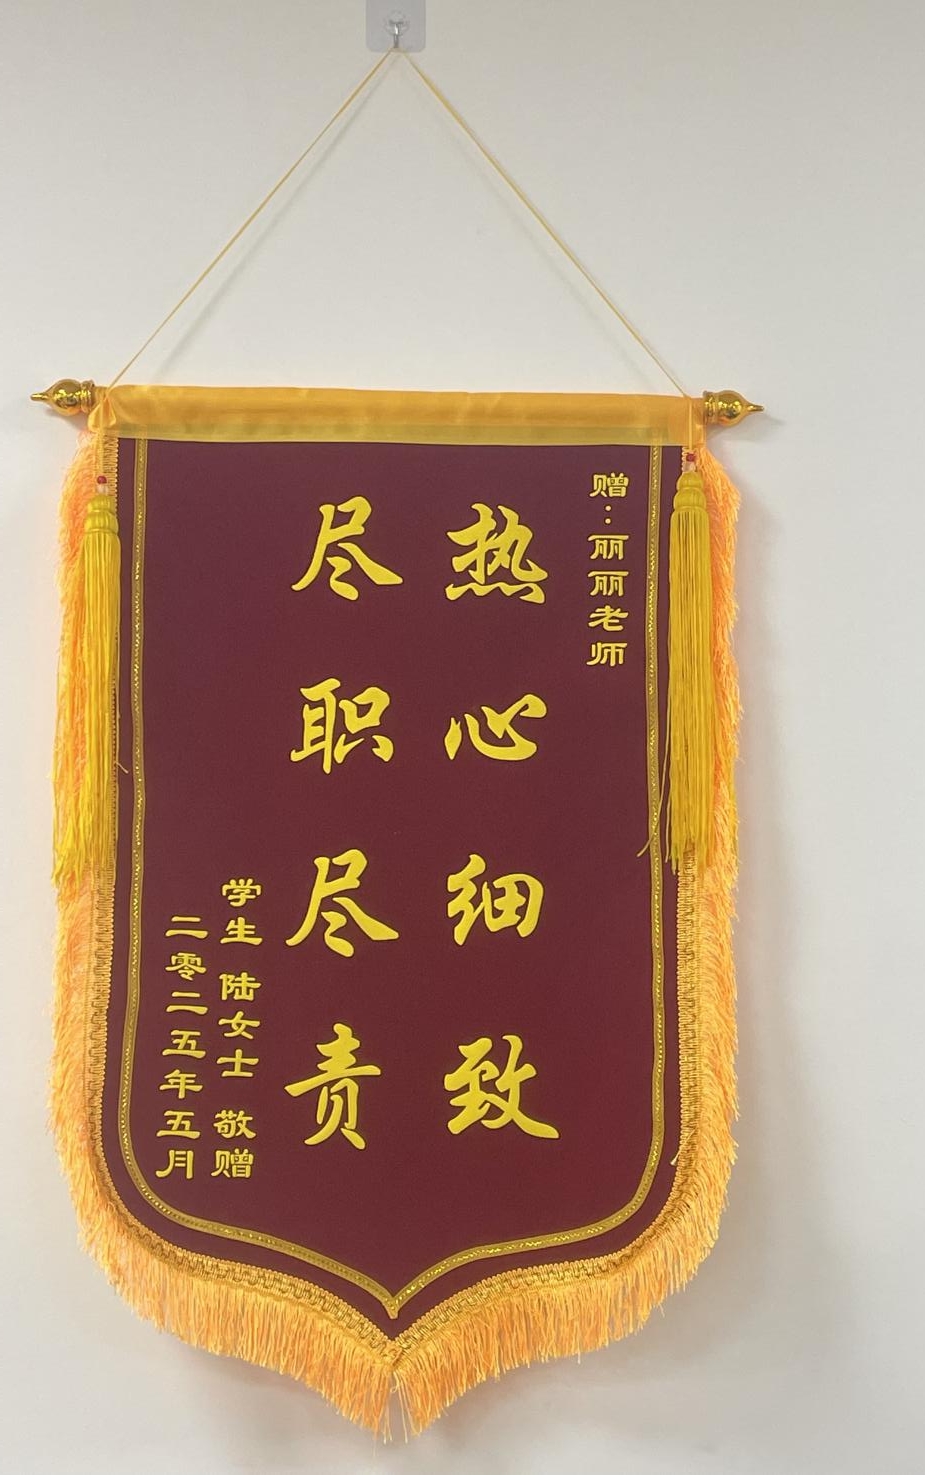 赠：丽丽老师
热心细致
尽职尽责
学生 陆女士 敬赠
二零二五年五月